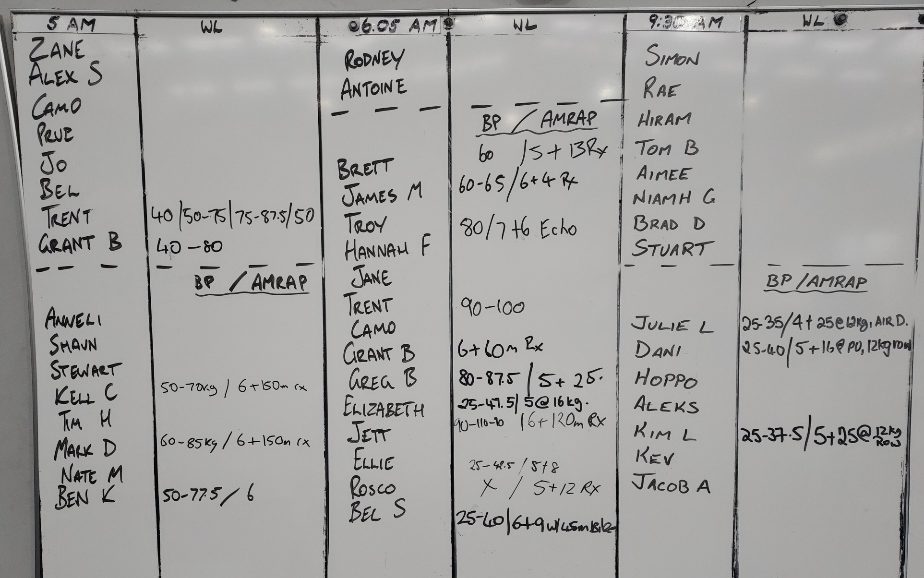 5 AM WL 6.05 AM WL 9:30 AM WL
ZANE RODNEY SIMON
ALEX S ANTOINE RAE
CAMO BP / AMRAP HIRAM
PRUE 60 / 5 + 13 Rx TOM B
JO BRETT AIMEE
BEL JAMES M 60-65 / 6+4 Rx NIAMH G
TRENT 40 / 50-75 / 75-87.5 / 50 TROY 80 / 7+6 Echo BRAD D
GRANT B 40 - 80 HANNAH F STUART
BP / AMRAP JANE BP / AMRAP
ANNELI TRENT 90-100 JULIE L 25-35 / 4 + 25 @ 12kg, AIR D.
SHAUN CAMO DANI 25-40 / 5 + 16 @ PU, 12kg row
STEWART GRANT B 6 + 60m Rx HOPPO
KELL C 50-70kg / 6+150m rx GREG B 80-87.5 / 5 + 25. ALEKS
TIM H ELIZABETH 25-47.5 / 5 @ 16kg.
MARK D 60-85kg / 6+150m rx JETT / 6+120m Rx KIM L 25-37.5 / 5+25 @ 12kg ROW
NATE M ELLIE / 5+8 KEV
BEN K 50-77.5 / 6 ROSCO X / 5+12 Rx JACOB A
BEL S 25-40 / 6+9 w/45m